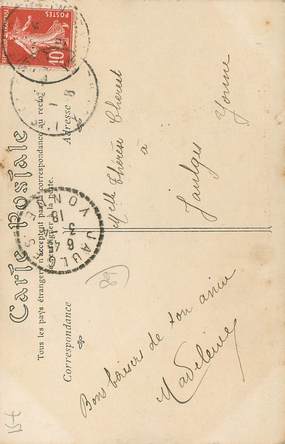 Carte Postale
Tous les pays étrangers n'acceptent pas la correspondance au recto
se renseigner à la poste
Correspondance
Adresse
POSTES
10
JAULGES
YONNE
Bons baisers de ton amie
Madeleine
Melle Thérèse
à
Jaulges
Yonne
15+